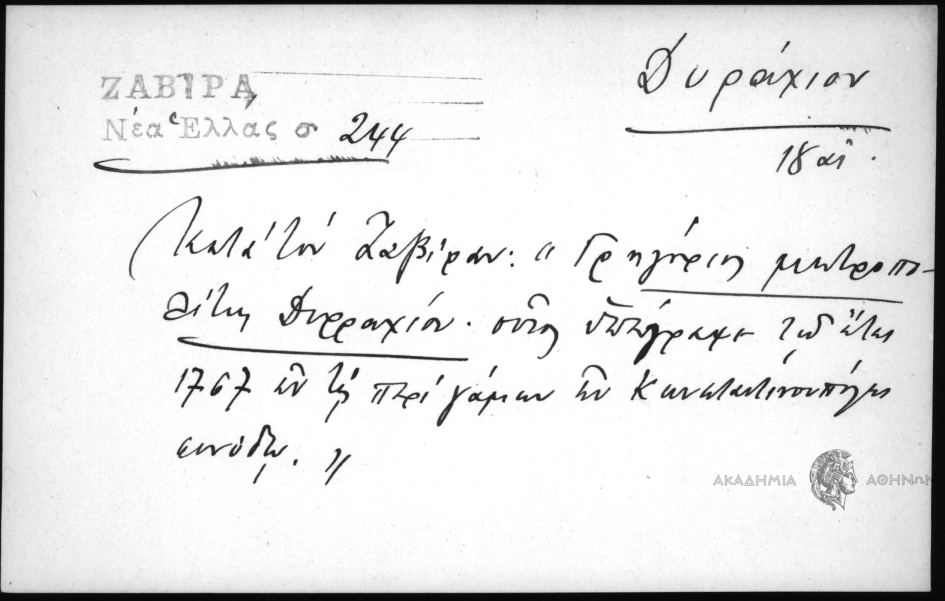 ΖΑΒΙΡΑ,
Νέα Ἑλλας σ 244
Δυράχιον
18 αἰ.
Κατὰ τὸν Ζαβίραν: "Γρηγόριος μητροπο-
λίτης Δυρραχίου. οὗτος ὑπέγραψε τῷ ἔτει
1767 ἐν τῇ περὶ γάμων ἐν Κωνσταντινουπόλει
συνόδῳ."
ΑΚΑΔΗΜΙΑ ΑΘΗΝΩΝ